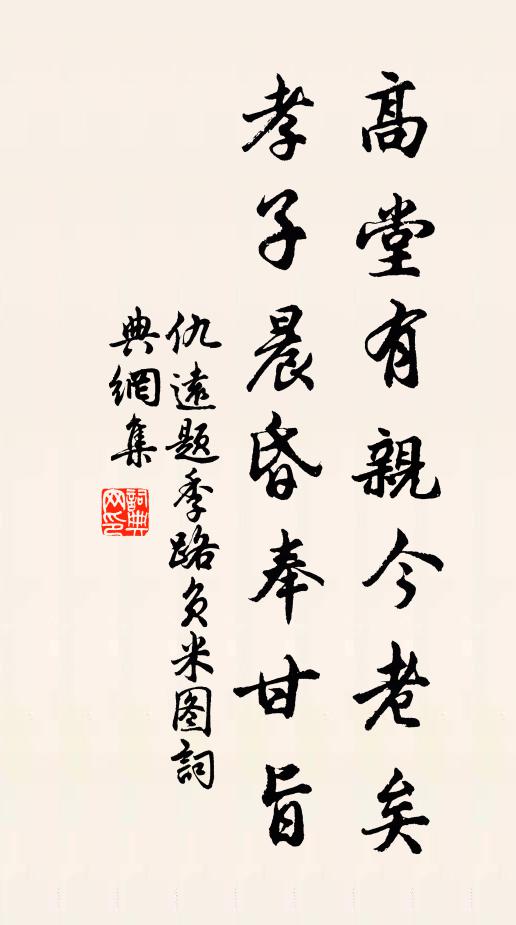 高堂有親今老矣
孝子晨昏奉甘旨
仇遠題季路負米图詞
典網集
詞典网印